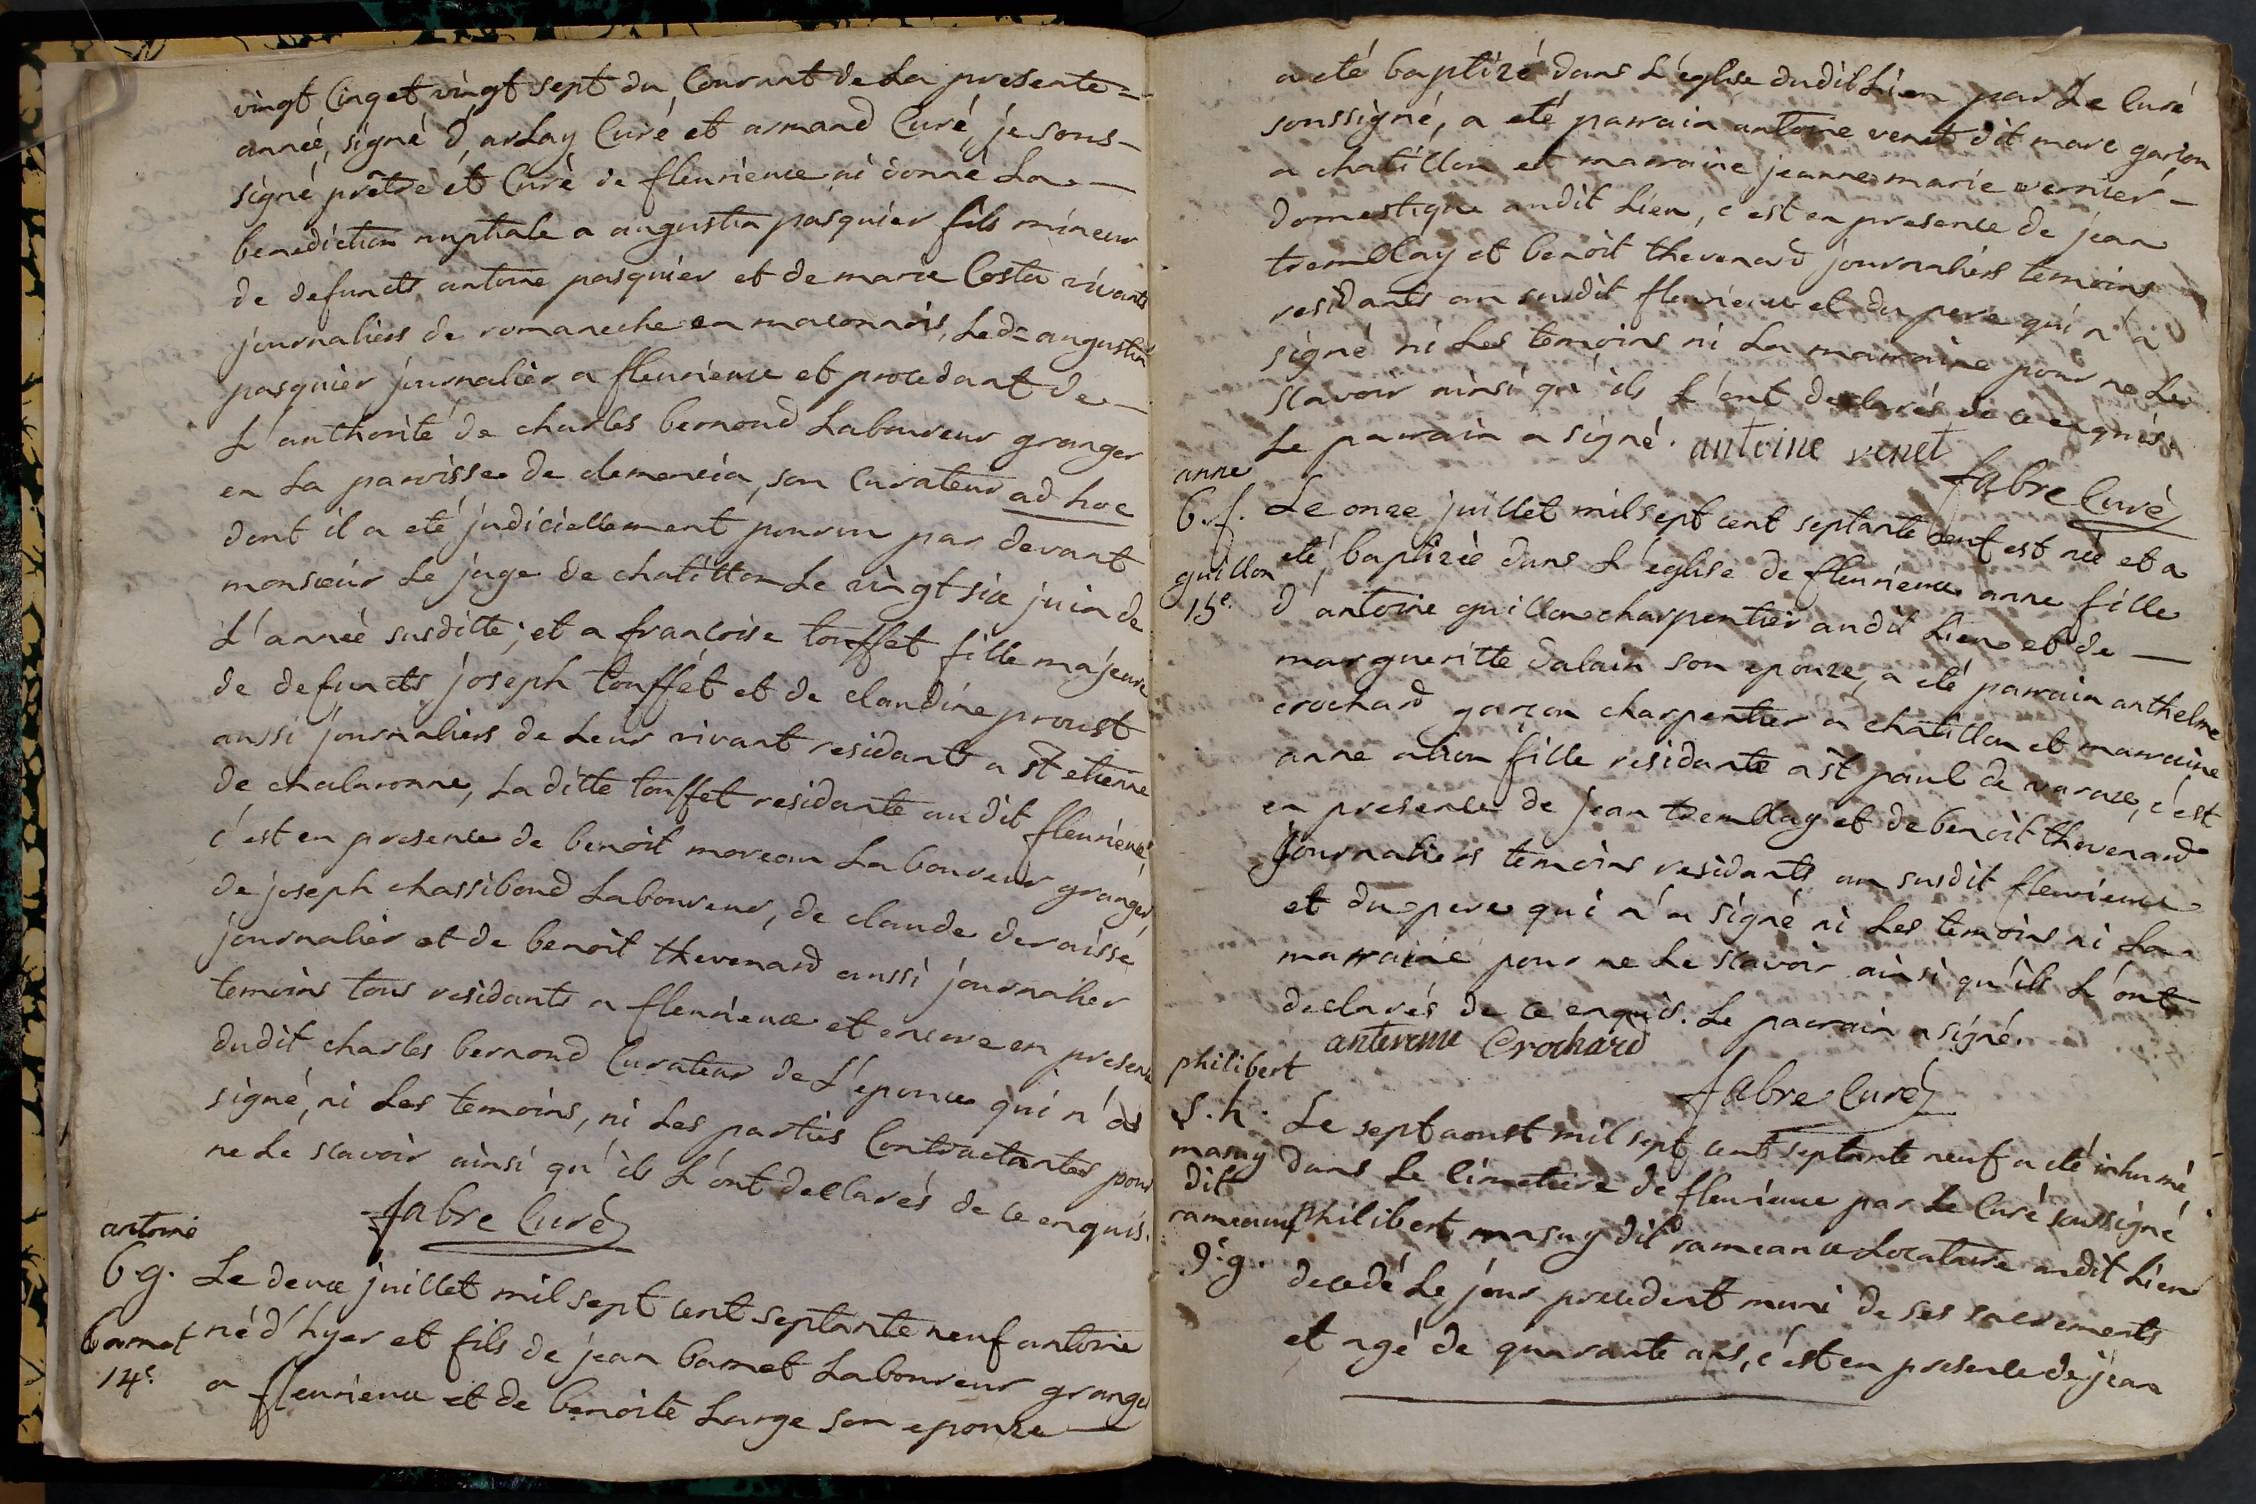 vingt Cinq et vingt sept du Courant de La presente=
année, signé d'arLay Curé et armand Curé, je sous-
signé prêtre et Curé de fleurieux ai donné La
benediction nuptiale a augustin pasquier fils mineur
de defuncts antoine pasquier et de marie Costa vivants
journaliers de romaneche en maconnois, Led= augustin
pasquier journalier a fleurieux et procedant de
L'authorité de charles bernond Laboureur granger
en La parroisse de clemencia, son Curateur ad hoc
dont il a eté judiciellement pourvu par devant
monsieur Le juge de chatillon Le vingt six juin de
L'année susditte; et a francoise touffet fille majeure
de defuncts joseph touffet et de claudine proust
aussi journaliers de Leur vivant residants a st etienne
de chalaronne, La ditte touffet residante au dit fleurieux,
c'est en presence de benoit moreau Laboureur granger,
de joseph chassibond Laboureur, de claude deraisse
journalier et de benoit thevenard aussi journalier
temoins tous residants a fleurieux et encore en presence
dudit charles bernond Curateur de L'epoux qui n'a
signé, ni Les temoins, ni Les parties Contractantes pour
ne Le scavoir ainsi qu'ils L'ont declarés de ce enquis.
fabre Curé
antoine
b.g. Le deux juillet mil sept cent septante neuf antoine
bamet né d'hyer et fils de jean bamet Laboureur granger
14e. a fleurieux et de benoite Large son epouze
a eté baptizé dans L'eglise dudit Lieu par Le Curé
soussigné, a eté parrain antoine venet dit marc garcon
a chatillon et marraine jeanne marie vernier
domestique audit Lieu, c'est en presence de jean
tremblay et benoit thevenard journaliers temoins
residants au susdit fleurieux et du pere qui n'a
signé ni Les temoins ni La marraine pour ne Le
scavoir ainsi qu'ils L'ont declarés de ce enquis.
Le parrain a signé. antoine venet
fabre Curé
anne
b.f. Le onze juillet mil sept cent septante neuf est née et a
guillon eté baptizée dans L'eglise de fleurieux anne fille
15e. d'antoine guillon charpentier audit Lieu et de
margueritte dalain son epouze, a eté parrain anthelme
crochard garcon charpentier a chatillon et marraine
anne fille residante a st paul de varax, c'est
en presence de jean tremblay et de benoit thevenard
journaliers temoins residants au susdit fleurieux
et du pere qui n'a signé ni Les temoins ni La
marraine pour ne Le scavoir ainsi qu'ils L'ont
declarés de ce enquis. Le parrain a signé.
Crochard
fabre Curé
philibert
s.h. Le sept aoust mil sept cent septante neuf a eté inhumé
masuy dans Le Cimetiere de fleurieux par Le Curé soussigné
dit
rameaux philibert masuy dit rameaux Locataire audit Lieu
9e. g. decedé Le jour precedent muni de ses sacrements
et agé de quarante ans, c'est en presence de jean